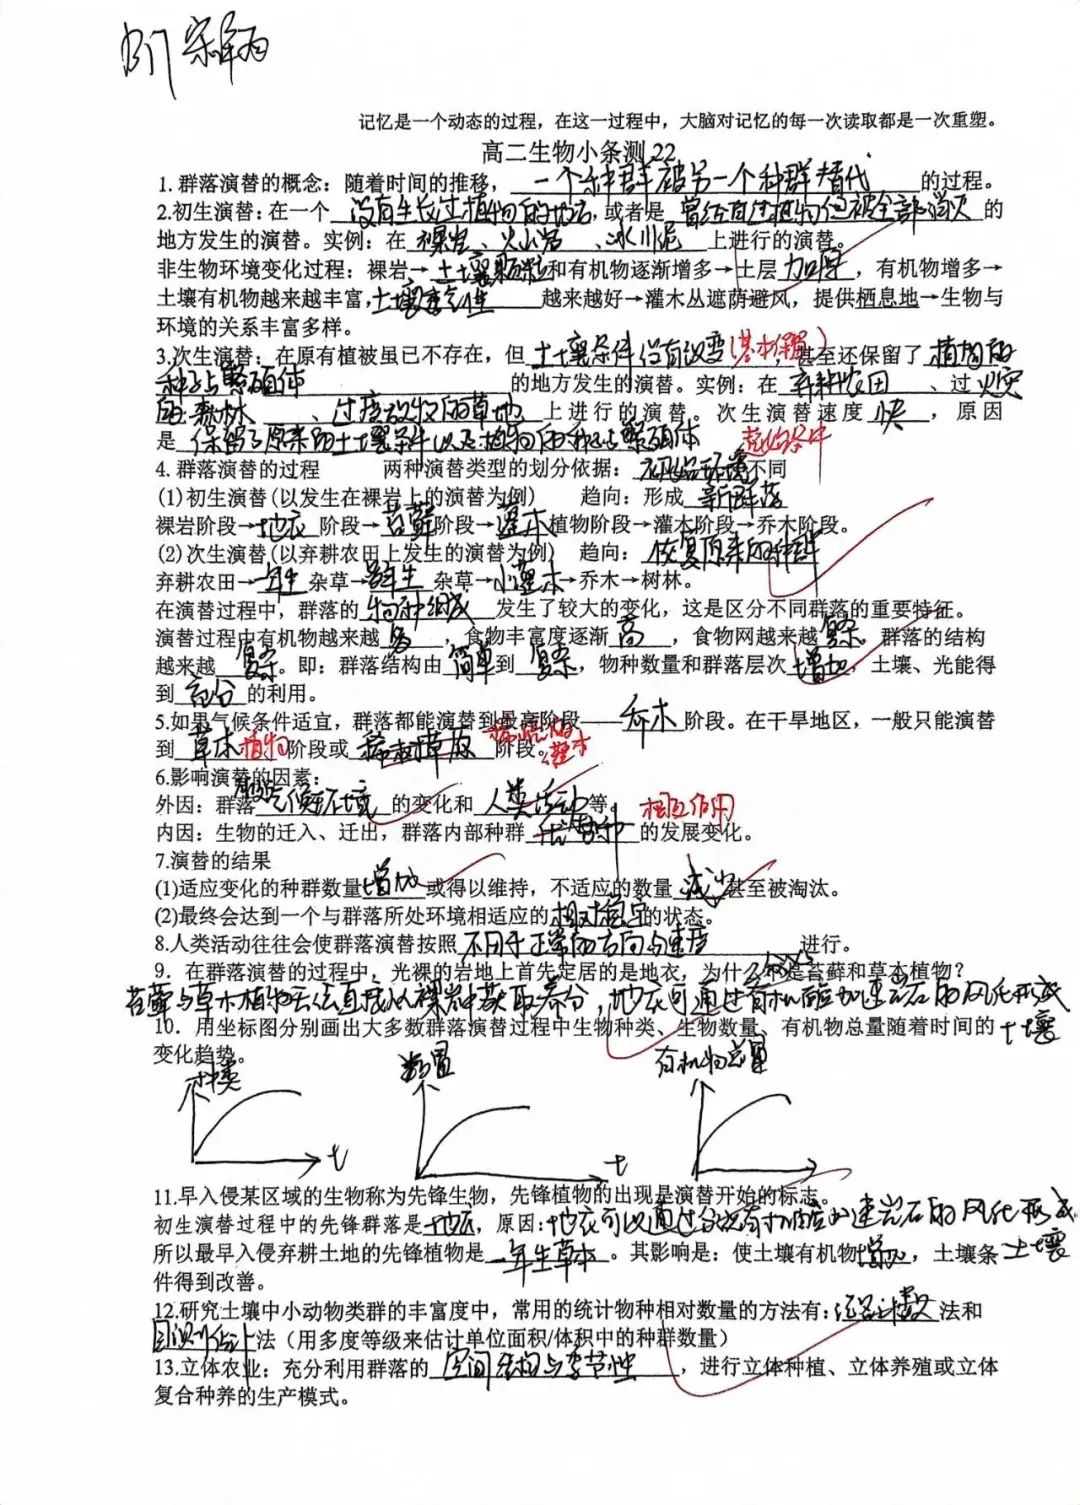 记忆是一个动态的过程，在这一过程中，大脑对记忆的每一次读取都是一次重塑。
高二生物小条测 22
1. 群落演替的概念：随着时间的推移，一个种群被另一个种群替代的过程。
2.初生演替：在一个没有生长过植物的地方，或者是曾经有过植物但被全部消灭的
地方发生的演替。实例：在裸岩、火山岩、冰川泥上进行的演替。
非生物环境变化过程：裸岩→土壤颗粒和有机物逐渐增多→土层加厚，有机物增多→
土壤有机物越来越丰富，土壤透气性越来越好→灌木丛遮荫避风，提供栖息地→生物与
环境的关系丰富多样。
3.次生演替：在原有植被虽已不存在，但土壤条件没有改变(基本保留)，甚至还保留了植物的
种子与繁殖体的地方发生的演替。实例：在弃耕农田、过火灾
的森林、过度放牧的草地上进行的演替。次生演替速度快，原因
是保留了原来的土壤条件以及植物的种子与繁殖体 起始条件
4. 群落演替的过程 两种演替类型的划分依据：不同
(1)初生演替(以发生在裸岩上的演替为例) 趋向：形成新群落
裸岩阶段→地衣阶段→苔藓阶段→灌木植物阶段→灌木阶段→乔木阶段。
(2)次生演替(以弃耕农田上发生的演替为例) 趋向：恢复原来的种群
弃耕农田→一年生杂草→多年生杂草→小灌木→乔木→树林。
在演替过程中，群落的物种组成发生了较大的变化，这是区分不同群落的重要特征。
演替过程中有机物越来越多，食物丰富度逐渐高，食物网越来越复杂。群落的结构
越来越复杂。即：群落结构由简单到复杂，物种数量和群落层次增加，土壤、光能得
到充分的利用。
5.如果气候条件适宜，群落都能演替到最高阶段——乔木阶段。在干旱地区，一般只能演替
到草本植物阶段或稀树草原阶段。稀疏的灌木
6.影响演替的因素：
外因：群落环境的变化和人类活动等。
内因：生物的迁入、迁出，群落内部种群优势种的发展变化。相互作用
7.演替的结果
(1)适应变化的种群数量增加或得以维持，不适应的数量减少甚至被淘汰。
(2)最终会达到一个与群落所处环境相适应的相对稳定的状态。
8.人类活动往往会使群落演替按照不同于正常的方向与速度进行。
9．在群落演替的过程中，光裸的岩地上首先定居的是地衣，为什么不是苔藓和草本植物？
苔藓与草本植物无法直接从裸岩中获取养分，地衣可通过有机酸加速岩石的风化形成
土壤
10．用坐标图分别画出大多数群落演替过程中生物种类、生物数量、有机物总量随着时间的
变化趋势。
种类 数量 有机物总量
t t
11.早入侵某区域的生物称为先锋生物，先锋植物的出现是演替开始的标志。
初生演替过程中的先锋群落是地衣，原因：地衣可以通过分泌有机酸加速岩石的风化形成
土壤
所以最早入侵弃耕土地的先锋植物是一年生草本。其影响是：使土壤有机物增加，土壤条
件得到改善。
12.研究土壤中小动物类群的丰富度中，常用的统计物种相对数量的方法有：记名计数法和
目测估计法（用多度等级来估计单位面积/体积中的种群数量）
13.立体农业：充分利用群落的空间结构与季节性，进行立体种植、立体养殖或立体
复合种养的生产模式。